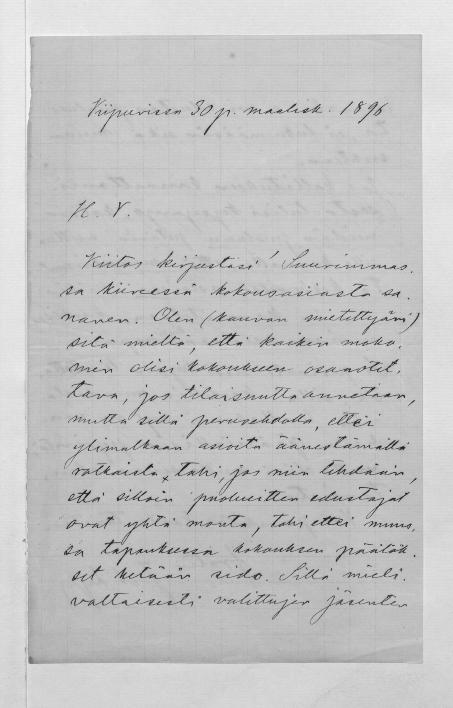 Viipurissa 30 p. maalisk. 1896
H. V.
Kiitos kirjastasi! Suurimmas-
sa kiireessä kokousasiasta sa-
nanen. Olen (kauvan mietittyäni)
sitä mieltä, että kaiken moko-
min olisi kokoukseen osaaotet-
tava, jos tilaisuutta annetaan,
mutta sillä perusehdolla, ettei
ylimalkaan asioita äänestämällä
ratkaista, tahi, jos niin tehdään,
että silloin puolueitten edustajat
ovat yhtä monta, tahi ettei muus-
sa tapauksessa kokouksen päätök-
set ketään sido. Sillä mieli-
valtaisesti valittujen jäsenten